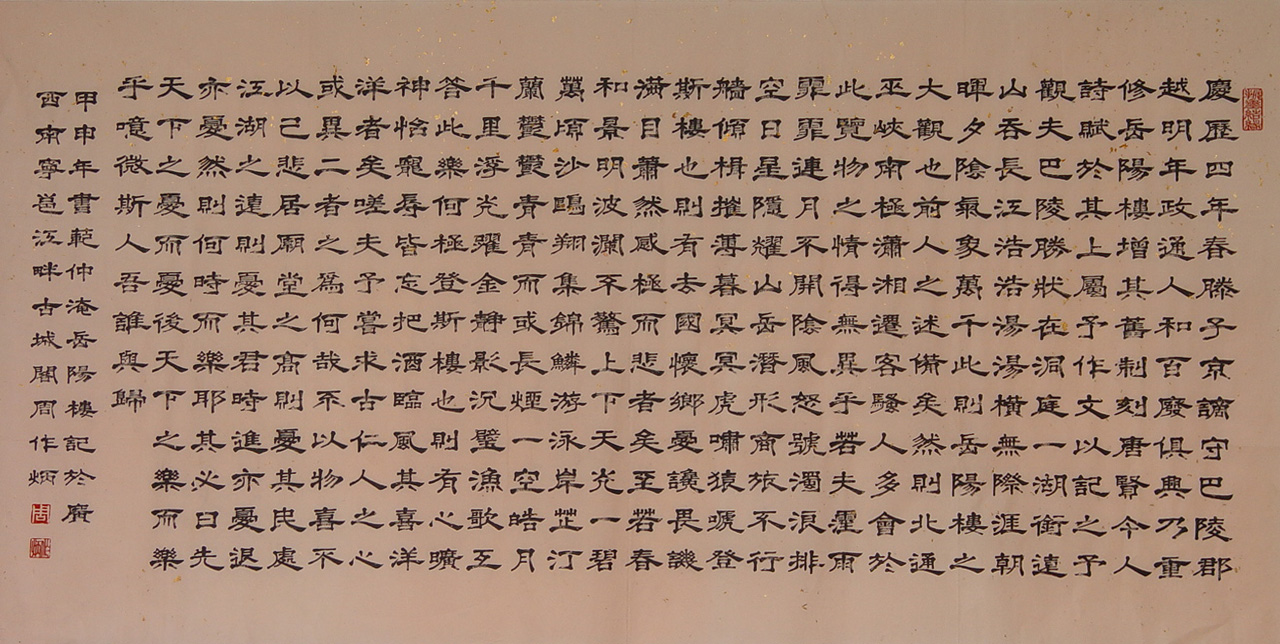 慶歷四年春滕子京謫守巴陵郡
越明年政通人和百廢俱興乃重
修岳陽樓增其舊制刻唐賢今人
詩賦於其上屬予作文以記之予
觀夫巴陵勝狀在洞庭一湖銜遠
山吞長江浩浩湯湯橫無際涯朝
暉夕陰氣象萬千此則岳陽樓之
大觀也前人之述備矣然則北通
巫峽南極瀟湘遷客騷人多會於
此覽物之情得無異乎若夫霪雨
霏霏連月不開陰風怒號濁浪排
空日星隱耀山岳潛形商旅不行
檣傾楫摧薄暮冥冥虎嘯猿號登
斯樓也則有去國懷鄉憂讒畏譏
滿目蕭然感極而悲者矣至若春
和景明波瀾不驚上下天光一碧
萬頃沙鷗翔集錦鱗游泳岸芷汀
蘭鬱鬱青青而或長煙一空皓月
千里浮光耀金靜影沉璧漁歌互
答此樂何極登斯樓也則有心曠
神怡寵辱皆忘把酒臨風其喜洋
洋者矣嗟夫予嘗求古仁人之心
或異二者之為何哉不以物喜不
以己悲居廟堂之高則憂其民處
江湖之遠則憂其君時進亦憂退
亦憂然則何時而樂耶其必曰先
天下之憂而憂後天下之樂而樂
乎噫微斯人吾誰與歸
甲申年書範仲淹岳陽樓記於廣
西南寧邕江畔古城閣周作炳